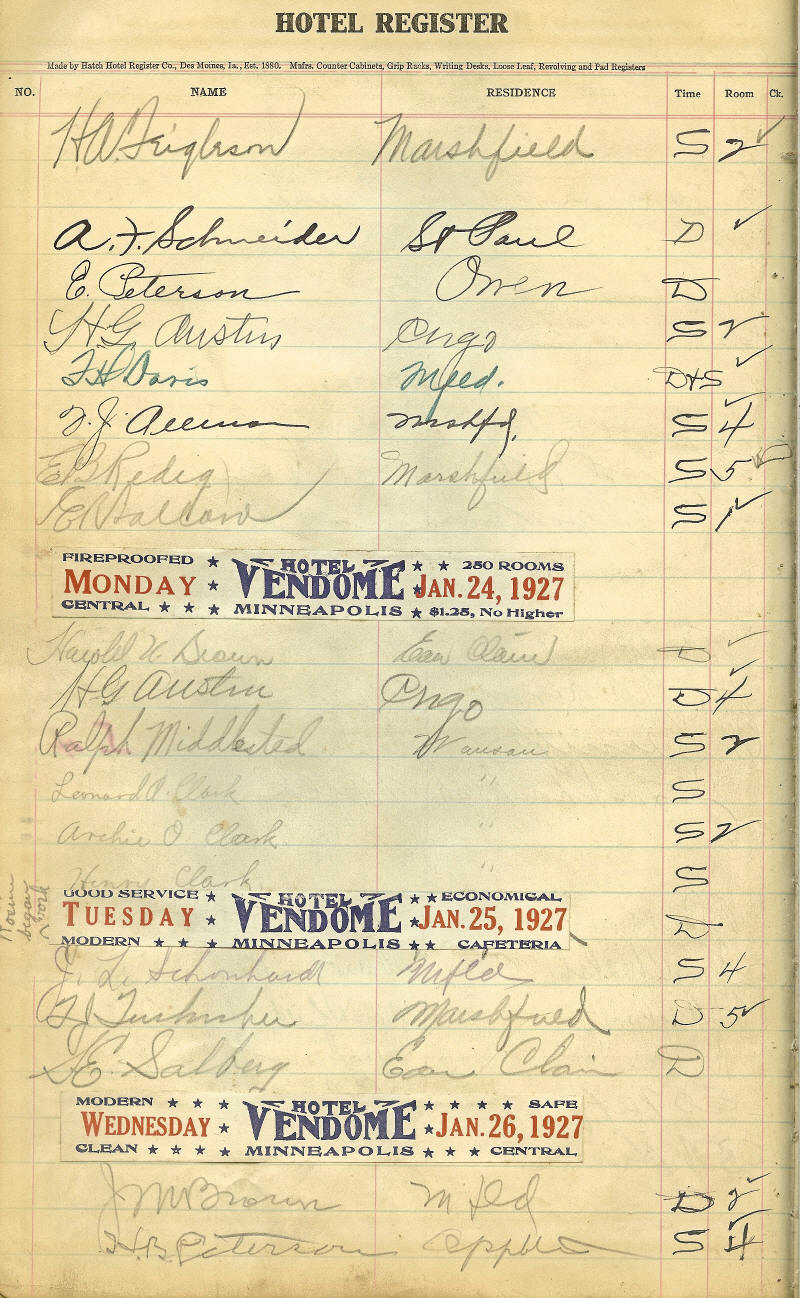 HOTEL REGISTER
Made by Hatch Hotel Register Co., Des Moines, Ia., Est. 1880. Mnfrs. Counter Cabinets, Grip Racks, Writing Desks, Loose Leaf, Revolving and Pad Registers
NO. NAME RESIDENCE Time Room Ck.
H.A. Marshfield S 2 ✓
A. F. Schneider St Paul D ✓
E. Peterson Owen D
H G Austin Chgo S 2
F H Davis Mfld. D+S ✓
F. J. Mshfd. S 4 ✓
E G Redig Marshfield S 5 ✓
S 1 ✓
FIREPROOFED ★ HOTEL ★ ★ 250 ROOMS
MONDAY ★ VENDOME ★ JAN. 24, 1927
CENTRAL ★ ★ ★ MINNEAPOLIS ★ $1.25, No Higher
Harold W. Brown Eau Claire D ✓
H G Austin Chgo D 4 ✓
Ralph Middlested Wausau S 2
Leonard P. Clark " S
Archie O. Clark " S 2
Henry Clark " S
began work
GOOD SERVICE ★ HOTEL ★ ★ ECONOMICAL
TUESDAY ★ VENDOME ★ JAN. 25, 1927
MODERN ★ ★ ★ MINNEAPOLIS ★ ★ CAFETERIA
D
J. L. Schonhardt Mfld S 4
Marshfield D 5 ✓
S E Salberg Eau Clair D
MODERN ★ ★ ★ HOTEL ★ ★ ★ ★ SAFE
WEDNESDAY ★ VENDOME ★ JAN. 26, 1927
CLEAN ★ ★ ★ ★ MINNEAPOLIS ★ ★ ★ CENTRAL
J M Brown Mfld D 2 ✓
H. B. Peterson S 4 ✓